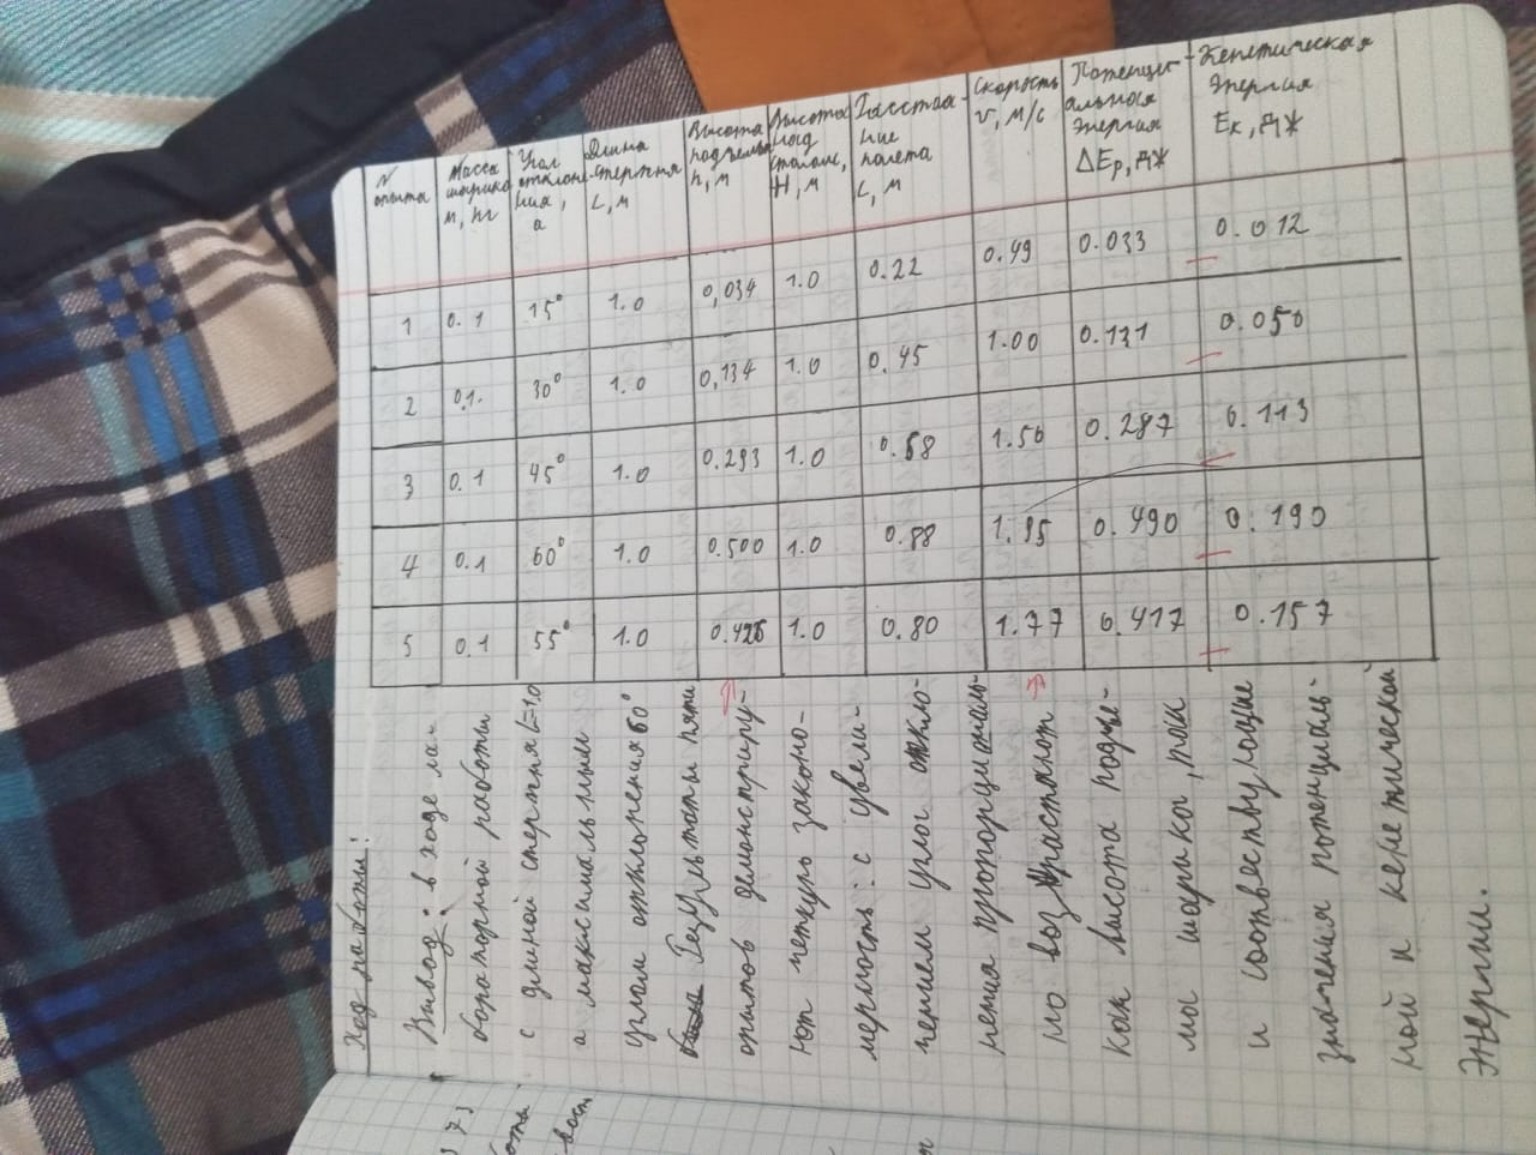 N опыта | Масса шарика m, кг | Угол отклонения, α | Длина стержня L, м | Высота подъема h, м | Высота над столом, H, м | Расстояние полета L, м | Скорость v, м/с | Потенциальная энергия ΔEp, Дж | Кенетическая Энергия Eк, Дж
1 | 0.1 | 15° | 1.0 | 0,034 | 1.0 | 0.22 | 0.49 | 0.033 | 0.012
2 | 0.1. | 30° | 1.0 | 0,134 | 1.0 | 0.45 | 1.00 | 0.131 | 0.050
3 | 0.1 | 45° | 1.0 | 0.293 | 1.0 | 0.68 | 1.50 | 0.287 | 0.113
4 | 0.1 | 60° | 1.0 | 0.500 | 1.0 | 0.88 | 1.95 | 0.490 | 0.190
5 | 0.1 | 55° | 1.0 | 0.426 | 1.0 | 0.80 | 1.77 | 0.417 | 0.157
Ход работы:
Вывод: в ходе ла-
бораторной работы
с длиной стержня L=1.0
а максимальным
углом отклонения 60°
Результаты пяти
опытов демонстриру-
ют четкую законо-
мерность: с увели-
чением угла откло-
нения пропорциональ-
но возрастают
как высота подъе-
ма шарика, так
и соответствующие
значения потенциаль-
ной и кенетической
Энергии.